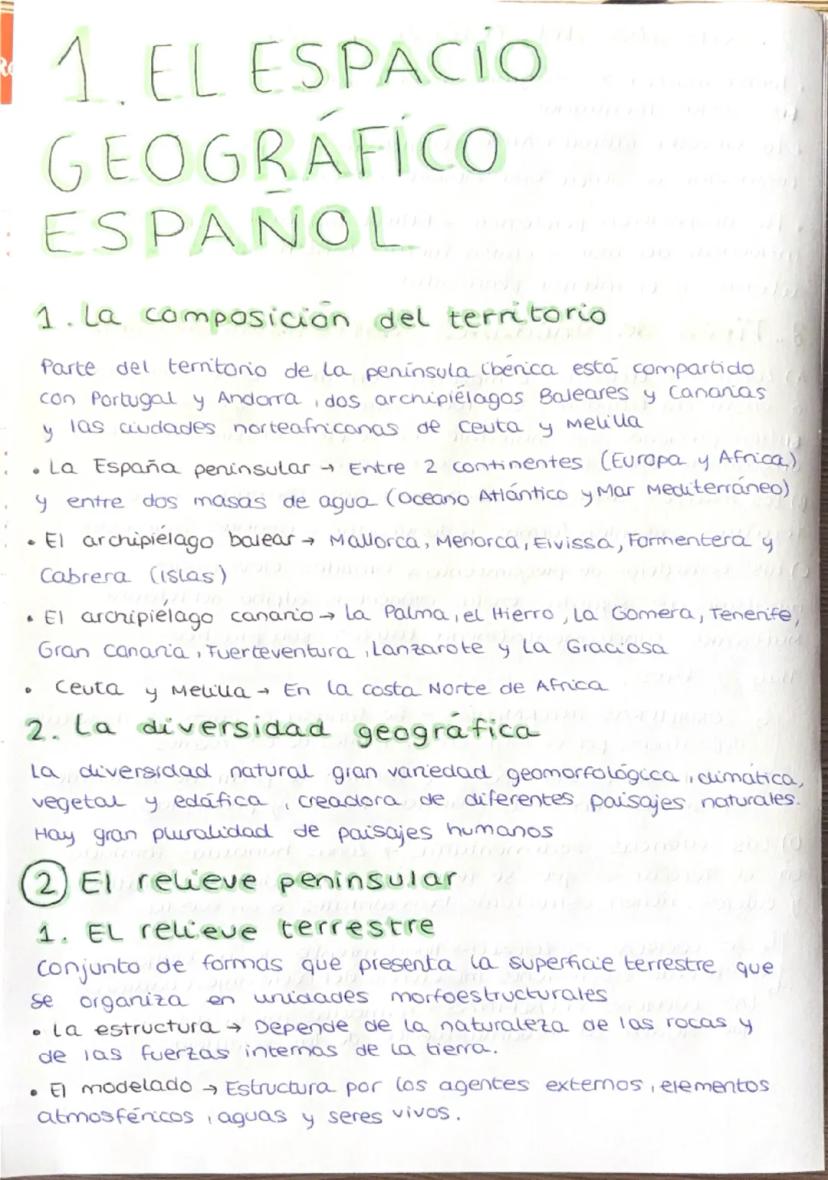 1. EL ESPACIO
GEOGRÁFICO
ESPAÑOL
1. La composición del territorio
Parte del territorio de la península ibérica está compartido
con Portugal y Andorra, dos archipiélagos Baleares y Canarias
y las ciudades norteafricanas de Ceuta y Melilla
• La España peninsular → Entre 2 continentes (Europa y Africa)
y entre dos masas de agua (Oceano Atlántico y Mar Mediterráneo)
• El archipiélago balear → Mallorca, Menorca, Eivissa, Formentera y
Cabrera (islas)
• El archipiélago canario → La Palma, el Hierro, La Gomera, Tenerife,
Gran Canaria, Fuerteventura, Lanzarote y La Graciosa
• Ceuta y Melilla → En la costa Norte de Africa
2. La diversidad geográfica
La diversidad natural gran variedad geomorfológica, climática,
vegetal y edáfica, creadora de diferentes paisajes naturales.
Hay gran pluralidad de paisajes humanos
2 El relieve peninsular
1. EL relieve terrestre
Conjunto de formas que presenta la superficie terrestre que
se organiza en unidades morfoestructurales
• La estructura → Depende de la naturaleza de las rocas y
de las fuerzas internas de la tierra.
• El modelado → Estructura por los agentes externos, elementos
atmosféricos, aguas y seres vivos.